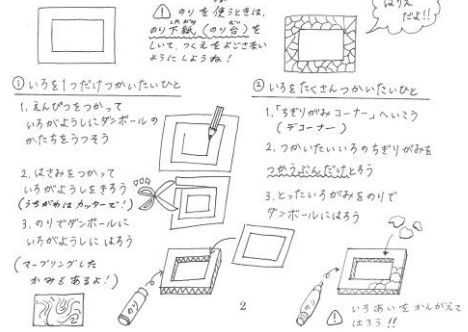 のりを使うときは、
のり下紙(のり台)を
しいて、つくえをよごさない
ようにしようね!
はりえ
だよ!!
① いろを1つだけつかいたいひと
1. えんぴつをつかって
いろがようしにダンボールの
かたちをうつそう
2. はさみをつかって
いろがようしをきろう
(うちがわはカッターで!)
3. のりでダンボールに
いろがようしに はろう
(マーブリングした
かみもあるよ!)
のり
② いろをたくさんつかいたいひと
1.「ちぎりがみコーナー」へいこう
(デコーナー)
2. つかいたいいろのちぎりがみを
つかうぶんだけとろう
3. とったいろがみをのりで
ダンボールにはろう
のり
いろあいをかんがえて
はろう!!
2